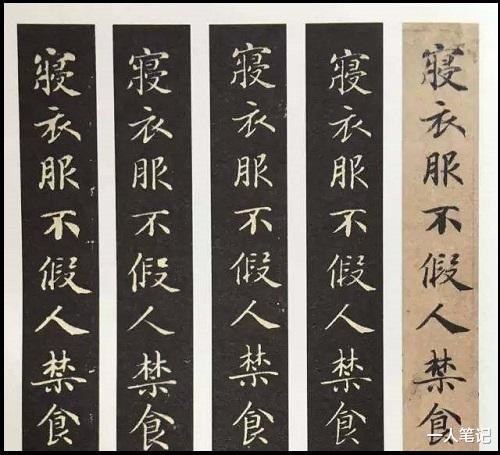 寢衣服不假人禁食
寢衣服不假人禁食
寢衣服不假人禁食
寢衣服不假人禁食
寢衣服不假人禁食
一人笔记